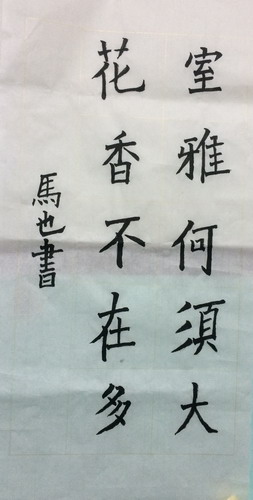 室雅何須大
花香不在多
馬也書